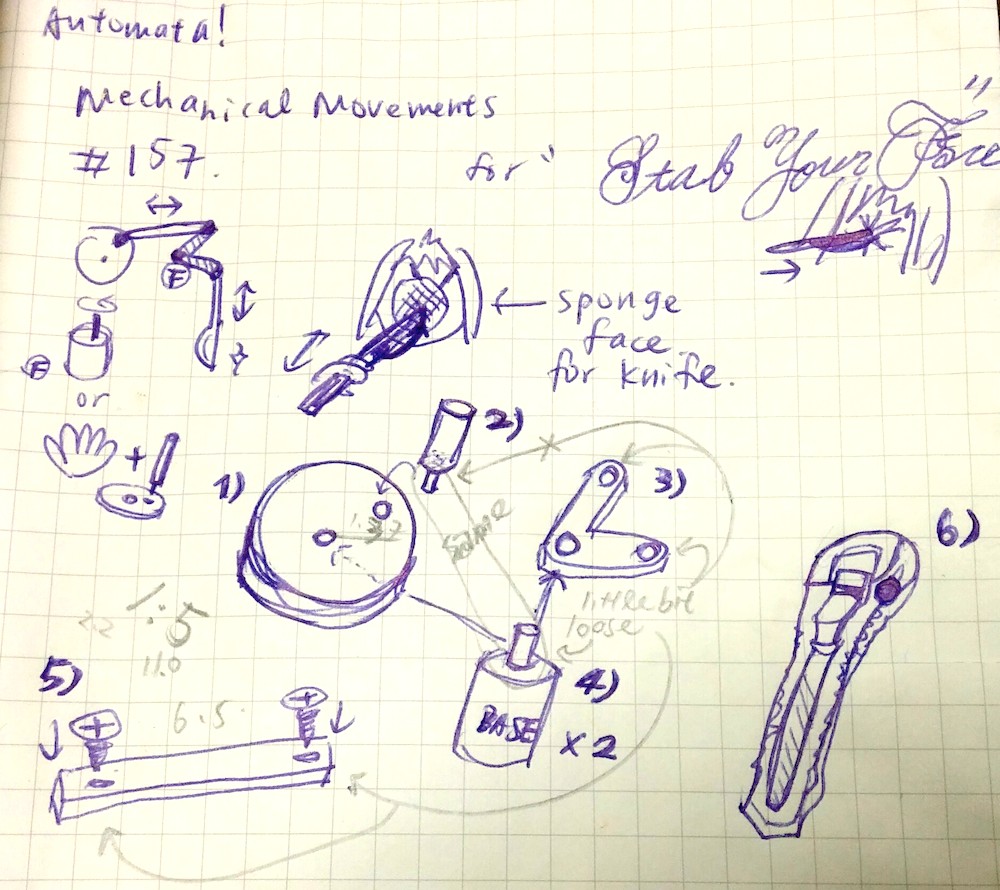 Automata!
Mechanical Movements
#157.
for "Stab Your Face"
F
F
or
sponge
face
for knife.
1)
2)
3)
same
little bit
loose
22
1.5
11.0
4)
BASE
x 2
5)
6.5
6)